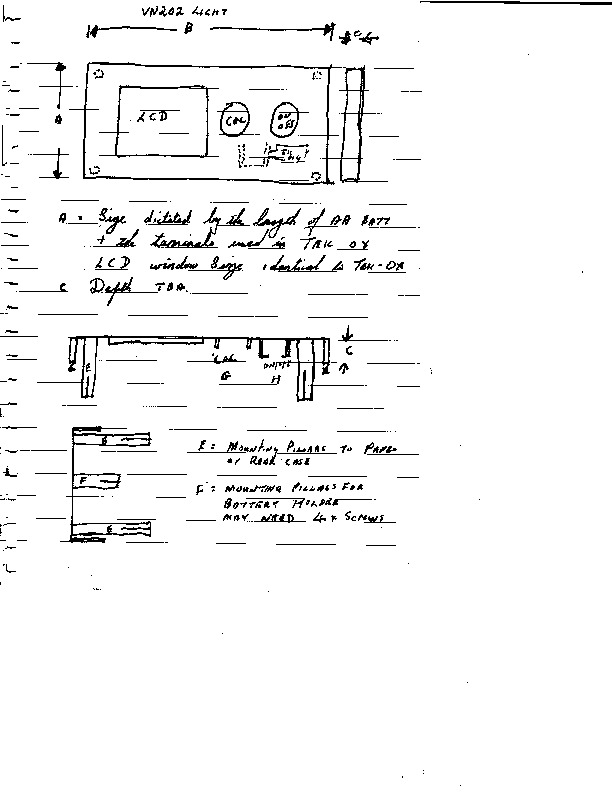 VN202 LIGHT
B
C
A
LCD
CAL
ON
OFF
A = Size dictated by the length of AA BATT
+ the terminals used in TEK OX
LCD window Size identical to TEK-OX
C Depth TBA
C
E
CAL
ON/OFF
G H
E
E = MOUNTING PILLARS TO PANEL
OR REAR CASE
F
F = MOUNTING PILLARS FOR
BATTERY HOLDER
MAY NEED 4 x SCREWS
E